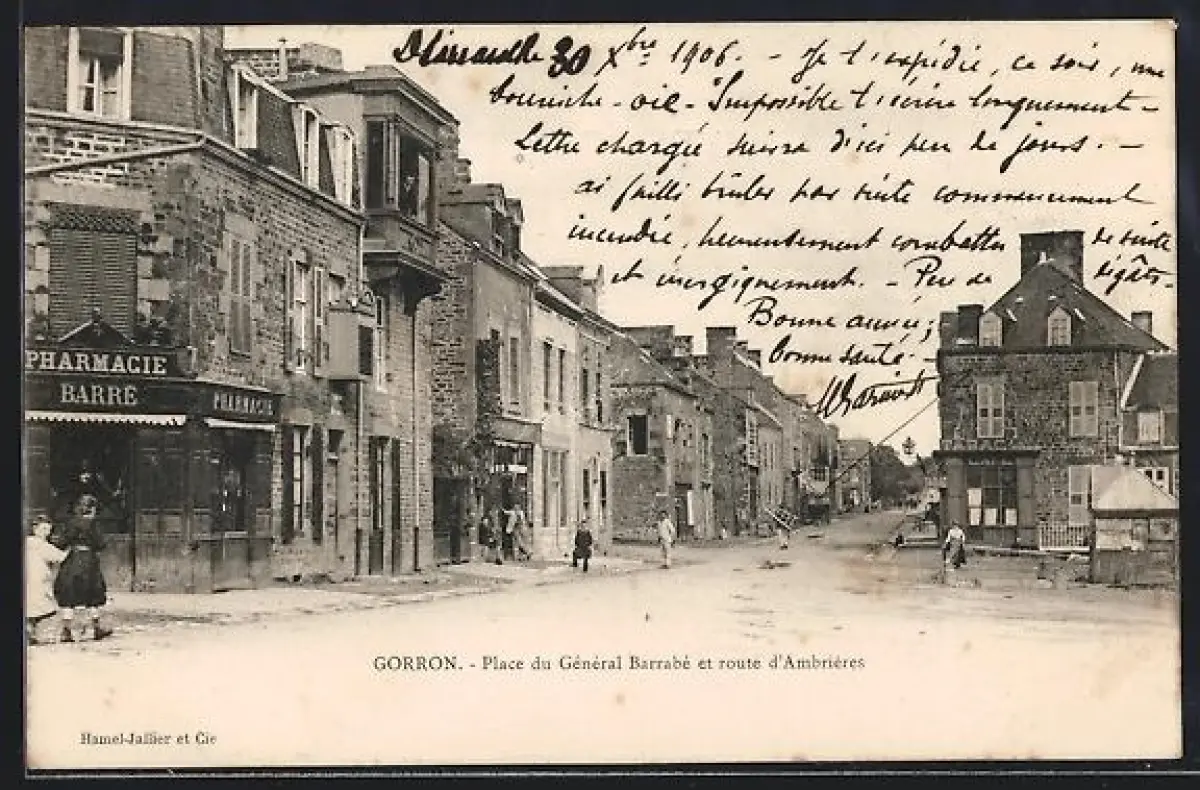 30 Xbre 1906. - Je t'expédie, ce soir, une
bourriche - oie - Impossible t'écrire longuement -
Lettre chargée suivra d'ici peu de jours. -
ai failli brûler par suite commencement
incendie, heureusement combattu de suite
et énergiquement. - Peu de dégâts.
Bonne année,
bonne santé.
PHARMACIE
BARRÉ
PHARMACIE
GORRON. - Place du Général Barrabé et route d'Ambrières
Hamel-Jallier et Cie